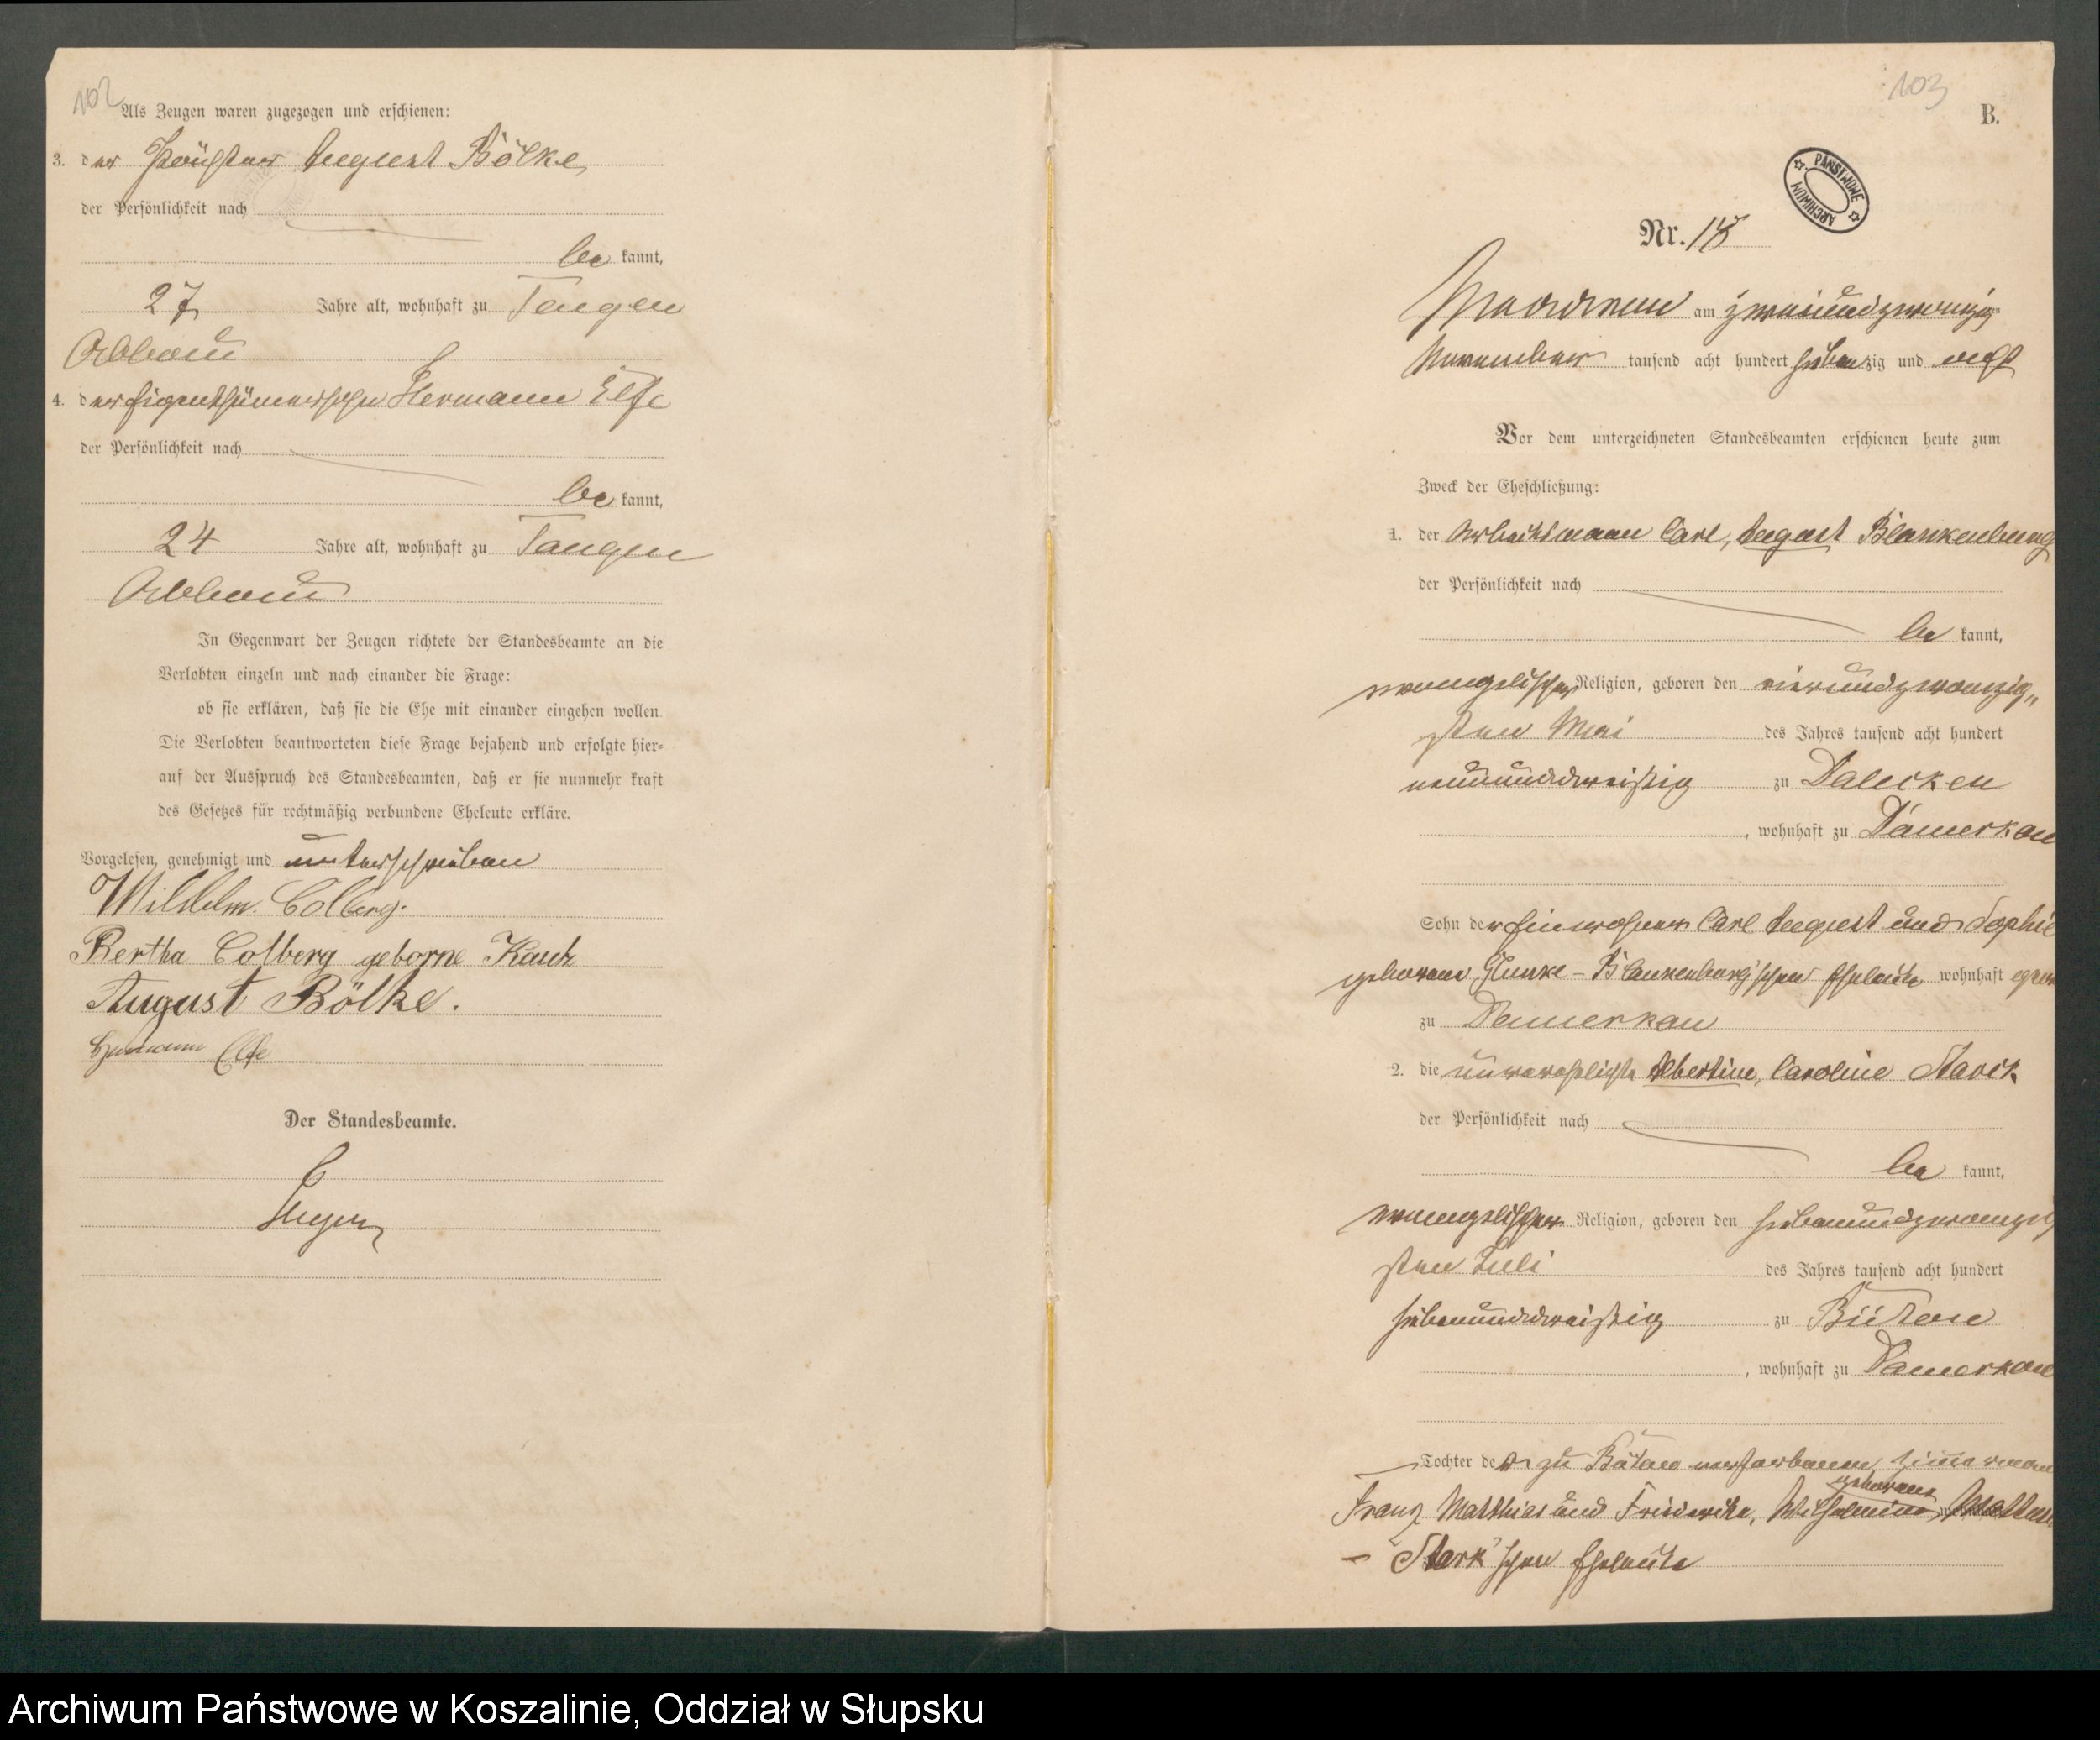 102
Als Zeugen waren zugezogen und erschienen:
3. der August Bölke
der Persönlichkeit nach
be kannt,
27 Jahre alt, wohnhaft zu Tangen
Abbau
4. der Eigenthümersohn Hermann Elfe
der Persönlichkeit nach
be kannt,
24 Jahre alt, wohnhaft zu Tangen
Abbau
In Gegenwart der Zeugen richtete der Standesbeamte an die
Verlobten einzeln und nach einander die Frage:
ob sie erklären, daß sie die Ehe mit einander eingehen wollen.
Die Verlobten beantworteten diese Frage bejahend und erfolgte hier-
auf der Ausspruch des Standesbeamten, daß er sie nunmehr kraft
des Gesetzes für rechtmäßig verbundene Eheleute erkläre.
Vorgelesen, genehmigt und unterschrieben
Wilhelm Colberg.
Bertha Colberg geborne
August Bölke.
Hermann Elfe
Der Standesbeamte.
103
B.
PAŃSTWOWE ARCHIWUM
Nr. 18
am zweiundzwanzig
November tausend acht hundert siebenzig und acht
Vor dem unterzeichneten Standesbeamten erschienen heute zum
Zweck der Eheschließung:
1. der Arbeitsmann Carl, August Blankenburg
der Persönlichkeit nach
be kannt,
evangelischer Religion, geboren den vierundzwanzig
sten Mai des Jahres tausend acht hundert
neununddreißig zu
, wohnhaft zu Damerkau
Sohn der Einwohner Carl August und Sophie
geborene Blankenburg'schen Eheleute wohnhaft
zu Damerkau
2. die unverehelichte Albertine, Caroline
der Persönlichkeit nach
be kannt,
evangelischer Religion, geboren den siebenundzwanzig
sten Juli des Jahres tausend acht hundert
siebenunddreißig zu Bütow
, wohnhaft zu Damerkau
Tochter der zu Bütow verstorbenen
Franz Matthias und Friederike, Wilhelmine geborene
– Stark'schen Eheleute
Archiwum Państwowe w Koszalinie, Oddział w Słupsku